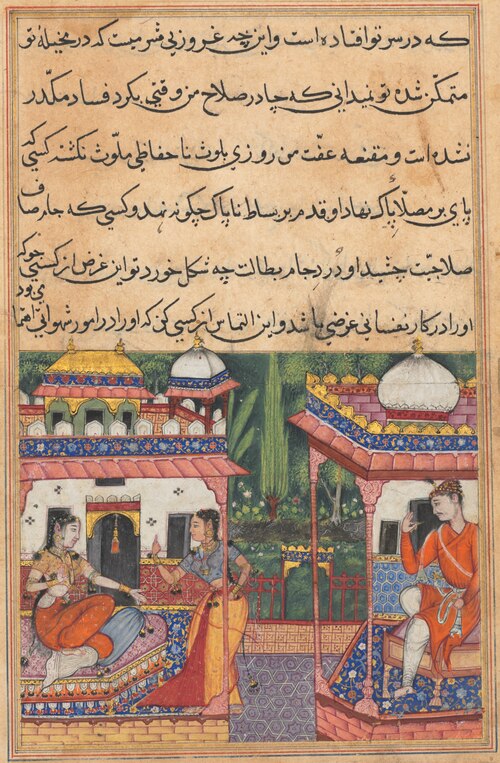 که در سر تو افتاده است و این چه غرور بی ثمر نیست که در مخیلهٔ تو
متمکّن شده تو نمیدانی که چادر صلاح من وقتی بکرد فساد مکدّر
نشده است و مقنعه عفّت من روزی بلوث ناحفاظی ملوّث نکشته کسی که
پای بر مصلّا پاک نهاد او قدم بر بساط ناپاک چکونه نهد و کسی که جام صاف
صلاحیّت چشید او دردِ جام بطالت چه شکل خورد تو این غرض از کسی جو که
او را در کار نفسانی غرضی باشد و این التماس از کسی کن که او را در امور شهوانی